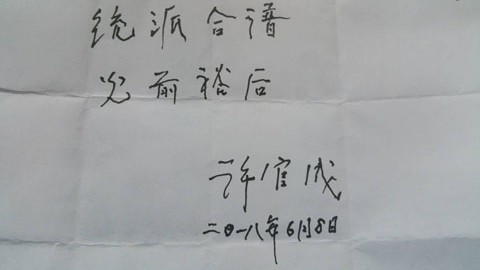 统派合谱
光前裕后
许官成
二0一八年6月8日